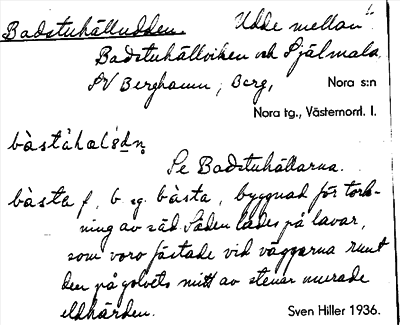 Badstuhälludden. Udde mellan
Badstuhällviken och Själmala,
SV Berghamn, Berg, Nora s:n
Nora tg., Västernorrl. l.
bàstàhal'ədn̥
Se Badstuhällarna.
bàsta f, b sg. bàsta, byggnad för tork-
ning av säd. Säden lades på lavar,
som voro fästade vid väggarna runt
den på golvets mitt av stenar murade
eldhärden. Sven Hiller 1936.